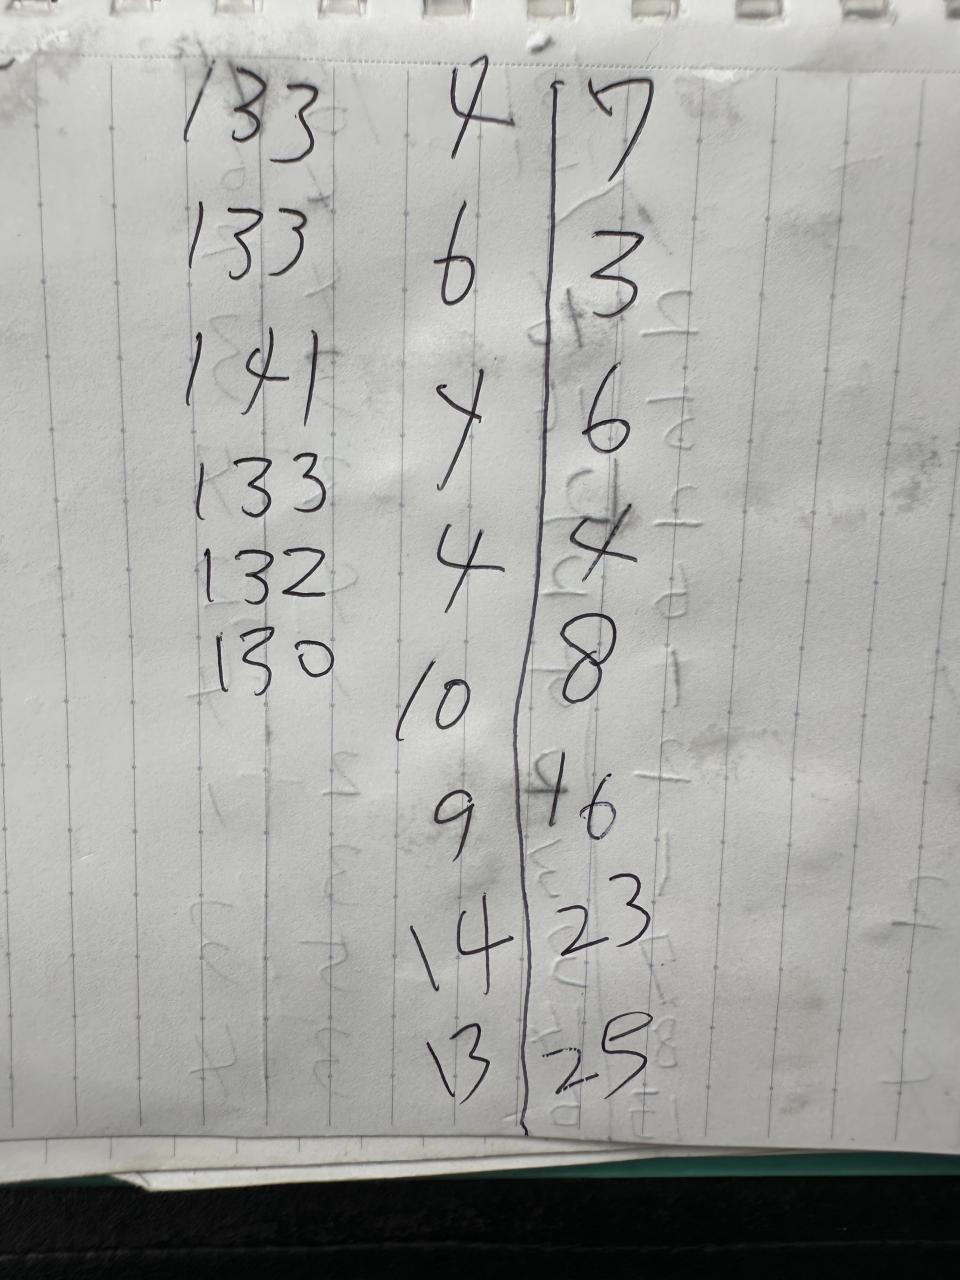 133 4 7
133 6 3
141 4 6
133 4 4
132 10 8
130 9 16
14 23
13 25